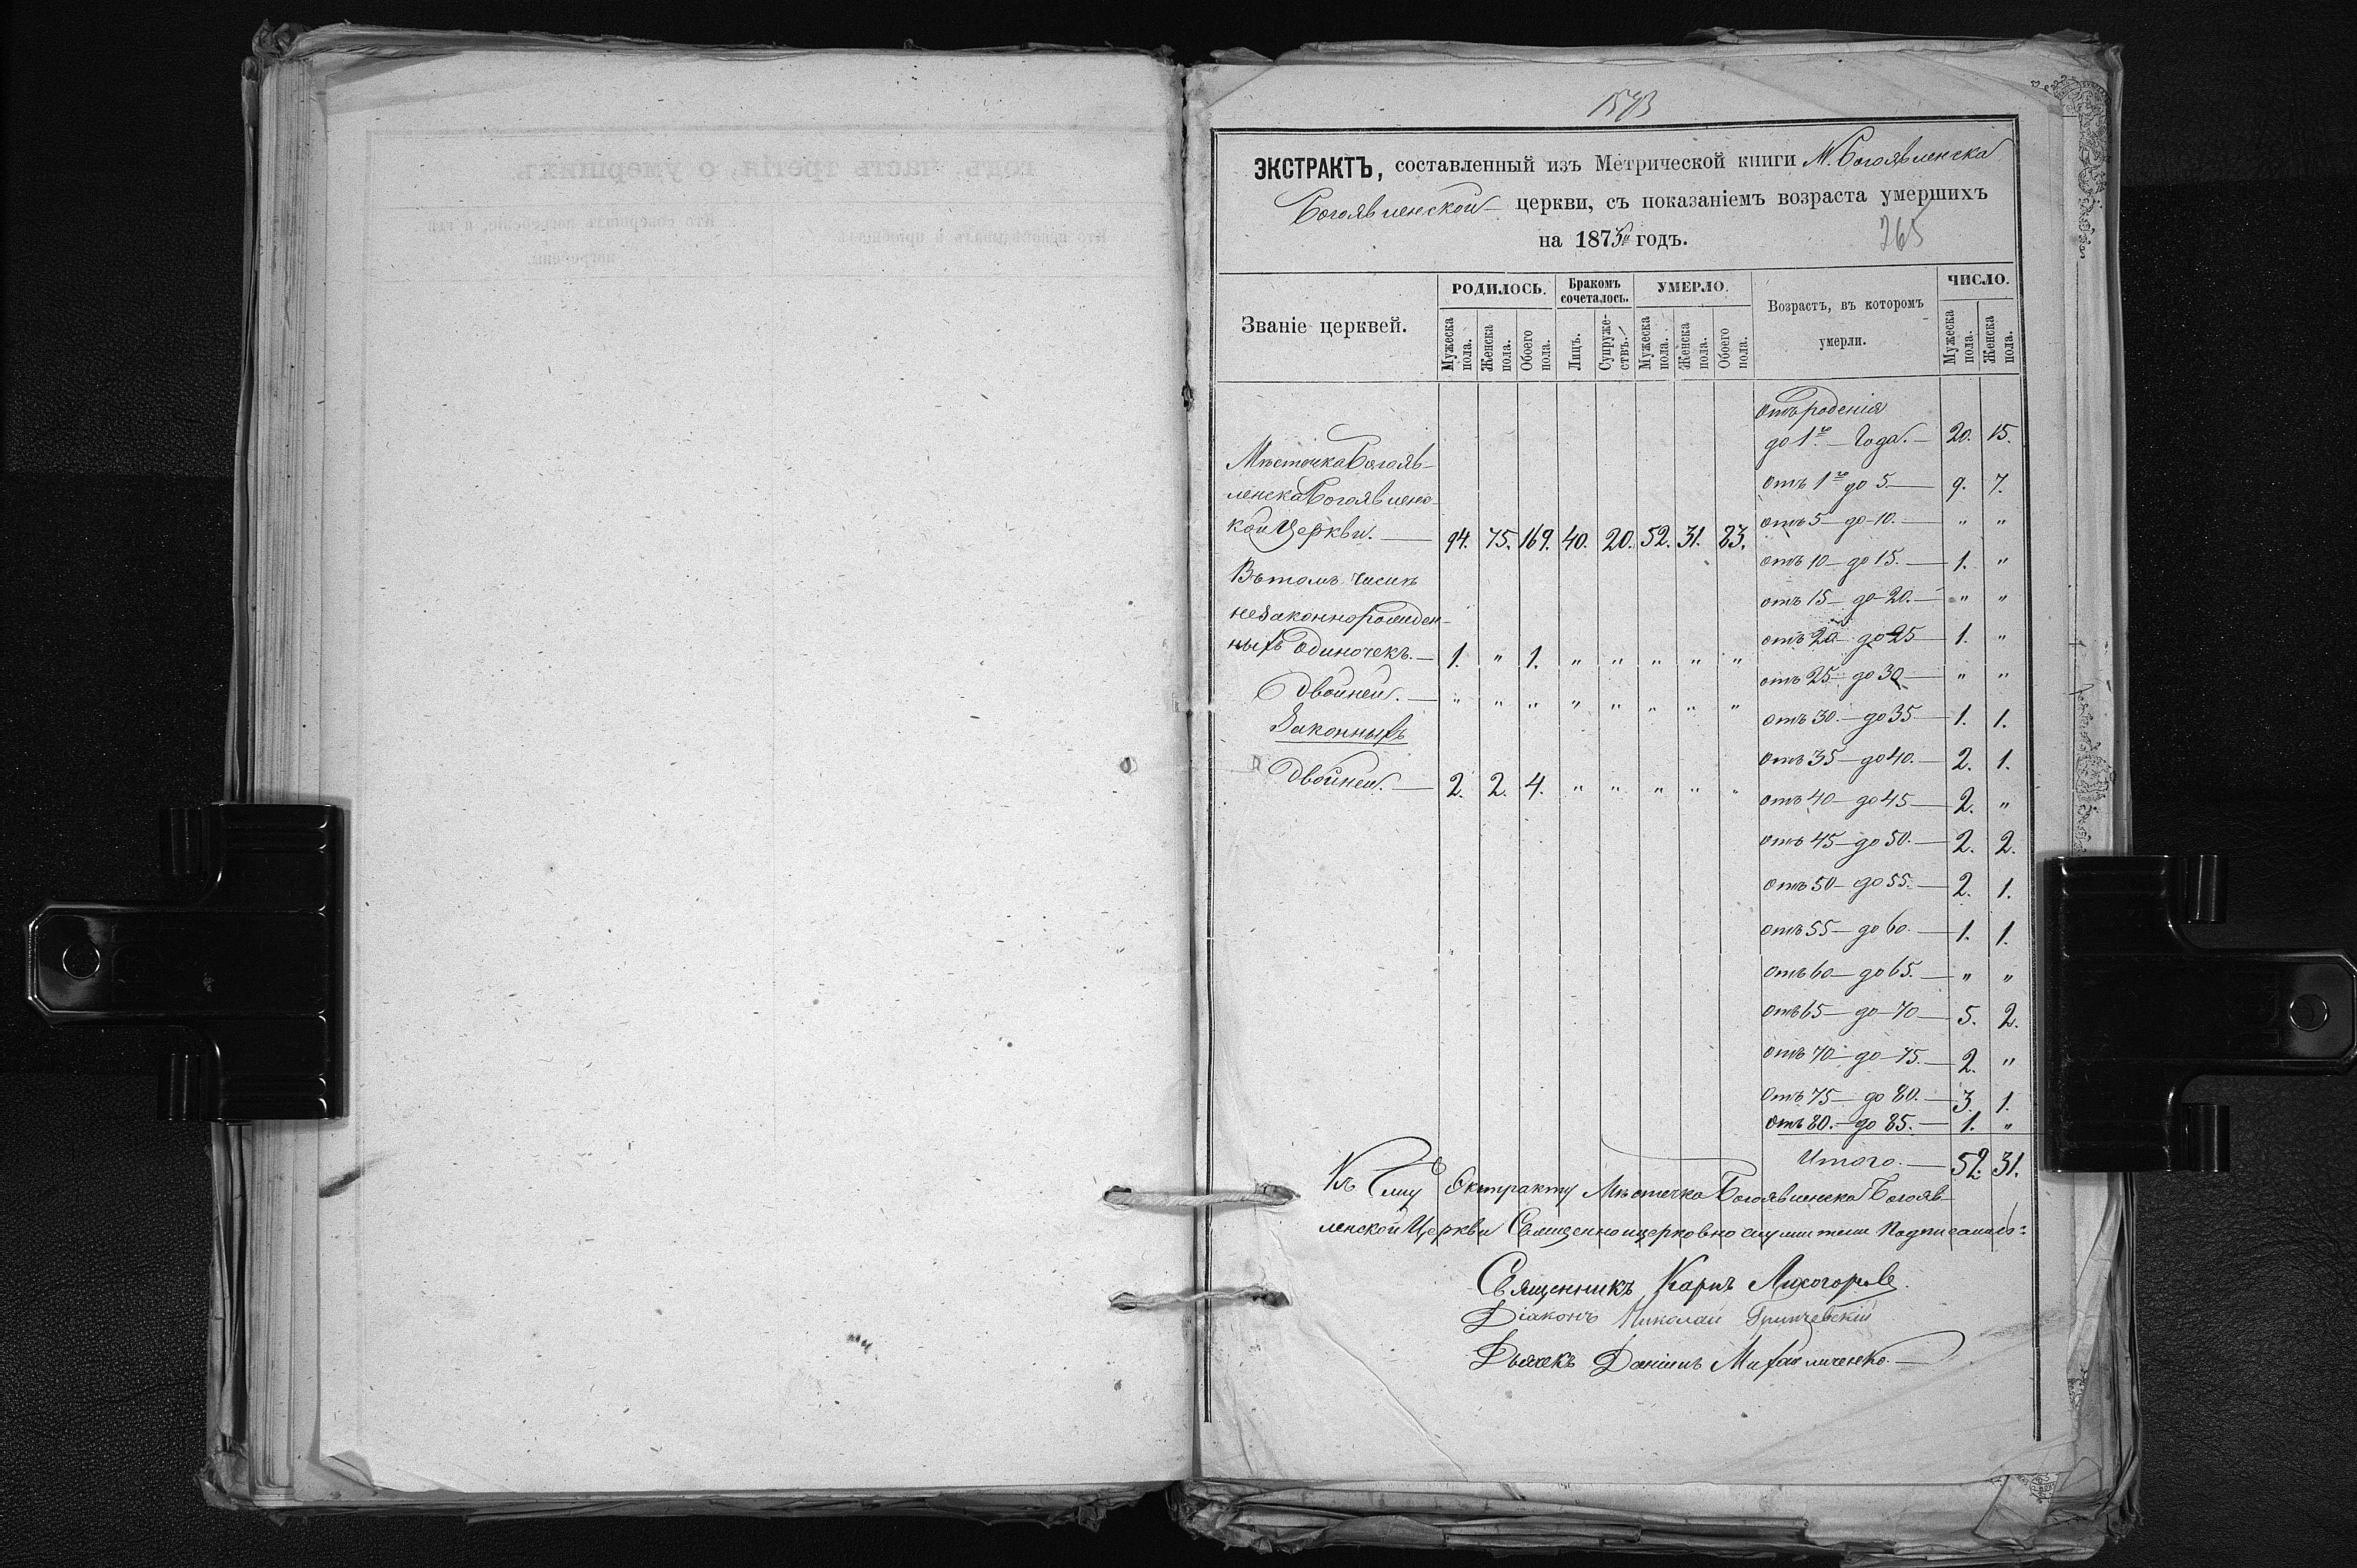 1573
ЭКСТРАКТЪ, составленный изъ Метрической книги М. Богоявленска
Богоявленской церкви, съ показаніемъ возраста умершихъ
на 1875й годъ.
265
Званіе церквей.
РОДИЛОСЬ.
Мужеска пола.
Женска пола.
Обоего пола.
Бракомъ сочеталось.
Лицъ.
Супружествъ.
УМЕРЛО.
Мужеска пола.
Женска пола.
Обоего пола.
Возрастъ, въ которомъ
умерли.
ЧИСЛО.
Мужеска пола.
Женска пола.
Мѣстечка Богояв-
ленска Богоявленс-
кой Церкви. — 94. 75. 169. 40. 20. 52. 31. 83.
Въ томъ числѣ
незаконнорожден-
ныхъ одиночекъ. — 1. " 1. " " " " "
Двойней. — " " " " " " " "
Законныхъ
Двойней. — 2. 2. 4. " " " " "
Отъ роденія
до 1го — Года. — 20. 15.
Отъ 1го до 5. — 9. 7.
отъ 5 — до 10. — " "
отъ 10 — до 15. — 1. "
отъ 15 — до 20. — " "
отъ 20 — до 25 — 1. "
отъ 25 — до 30 — " "
отъ 30. — до 35 — 1. 1.
отъ 35 — до 40. — 2. 1.
отъ 40 — до 45 — 2. "
отъ 45 — до 50. — 2. 2.
отъ 50 — до 55. — 2. 1.
отъ 55 — до 60. — 1. 1.
отъ 60 — до 65. — " "
отъ 65 — до 70 — 5. 2.
отъ 70 — до 75. — 2. "
отъ 75 — до 80. — 3. 1.
отъ 80. — до 85. — 1. "
Итого. — 52. 31.
Къ Сему Экстракту Мѣстечка Богоявленска Богояв-
ленской Церкви Священноцерковнослужители Подписались:
Священникъ Карпъ
Діаконъ Николай Гринчевскій
Дьячекъ Даніилъ Михайличенко. —